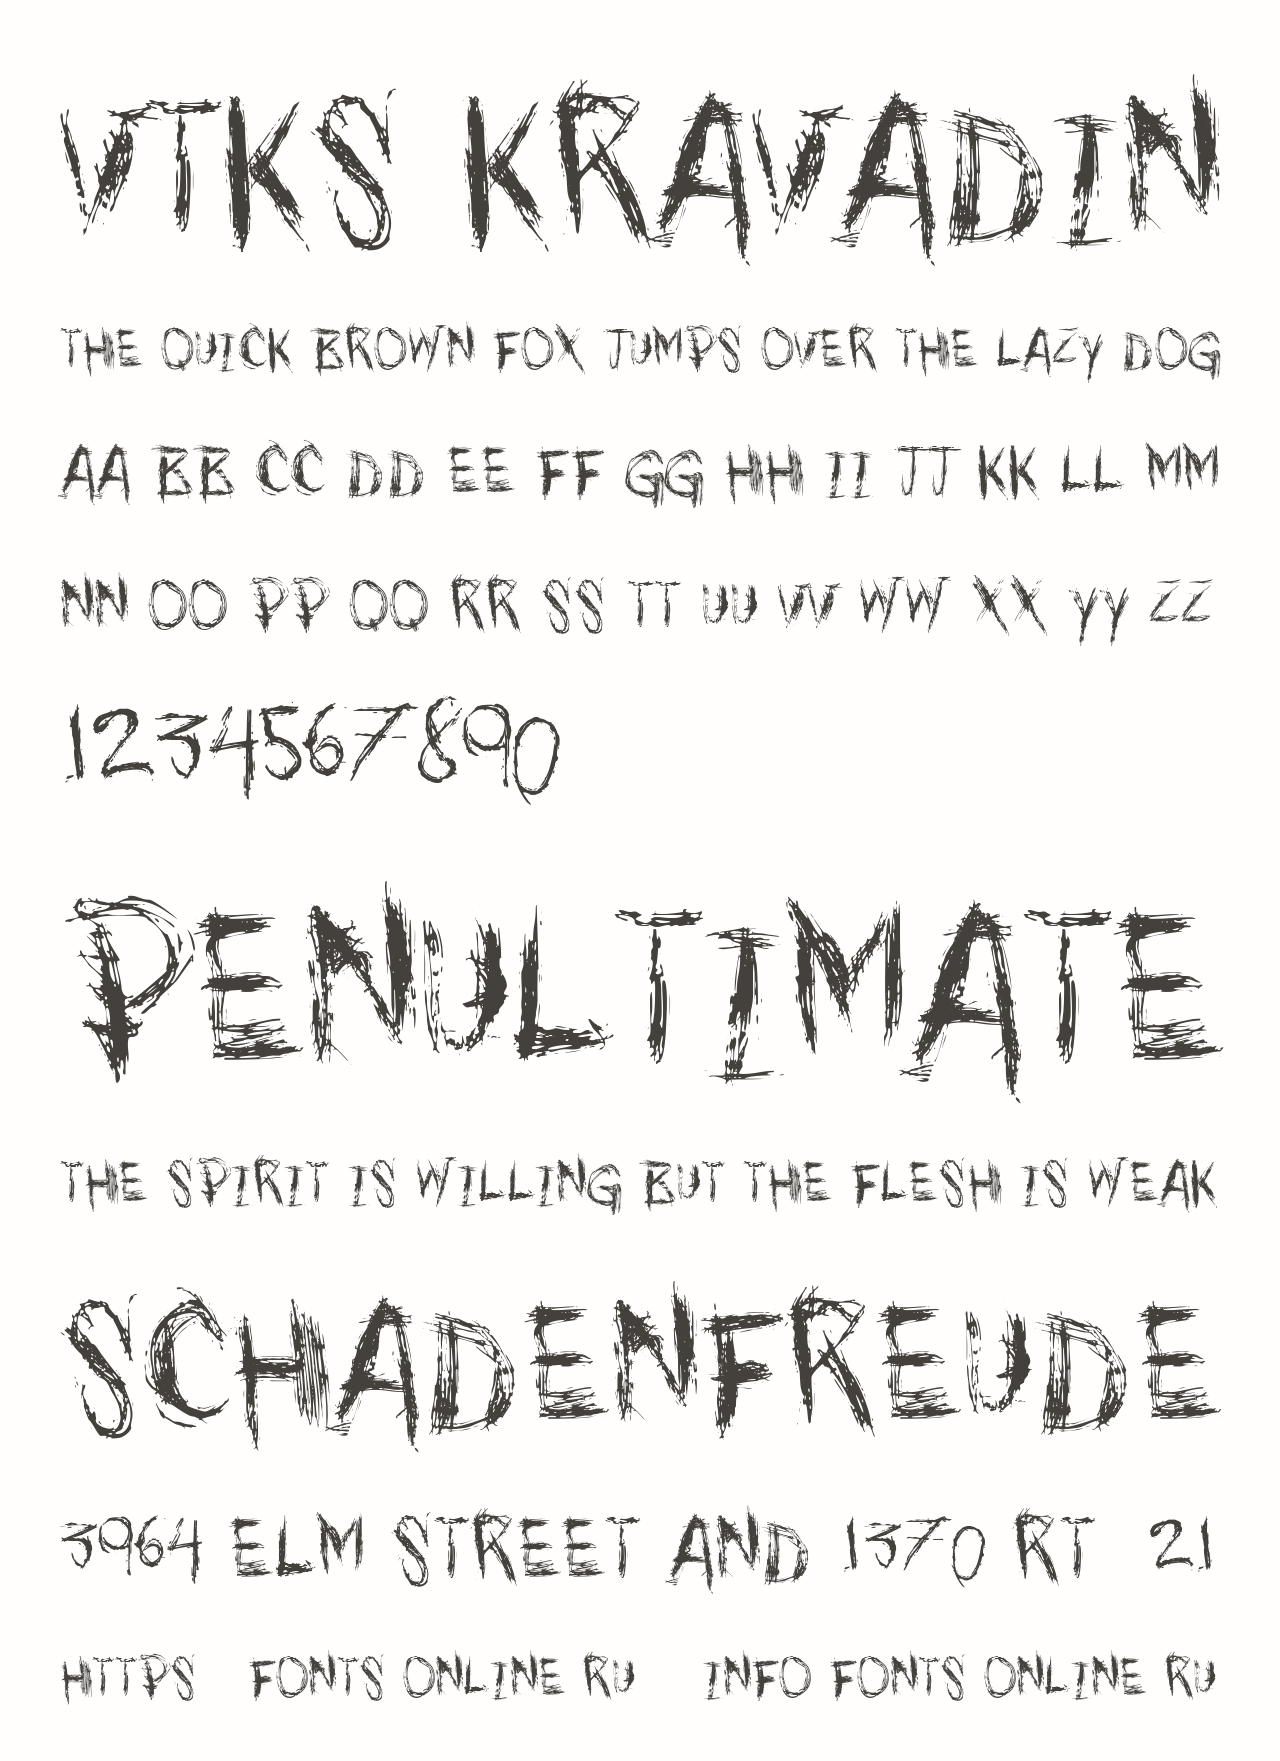 VTKS KRAVADIN
THE QUICK BROWN FOX JUMPS OVER THE LAZY DOG
AA BB CC DD EE FF GG HH II JJ KK LL MM
NN OO PP QQ RR SS TT UU VV WW XX YY ZZ
1234567890
PENULTIMATE
THE SPIRIT IS WILLING BUT THE FLESH IS WEAK
SCHADENFREUDE
3964 ELM STREET AND 1370 RT 21
HTTPS FONTS ONLINE RU INFO FONTS ONLINE RU